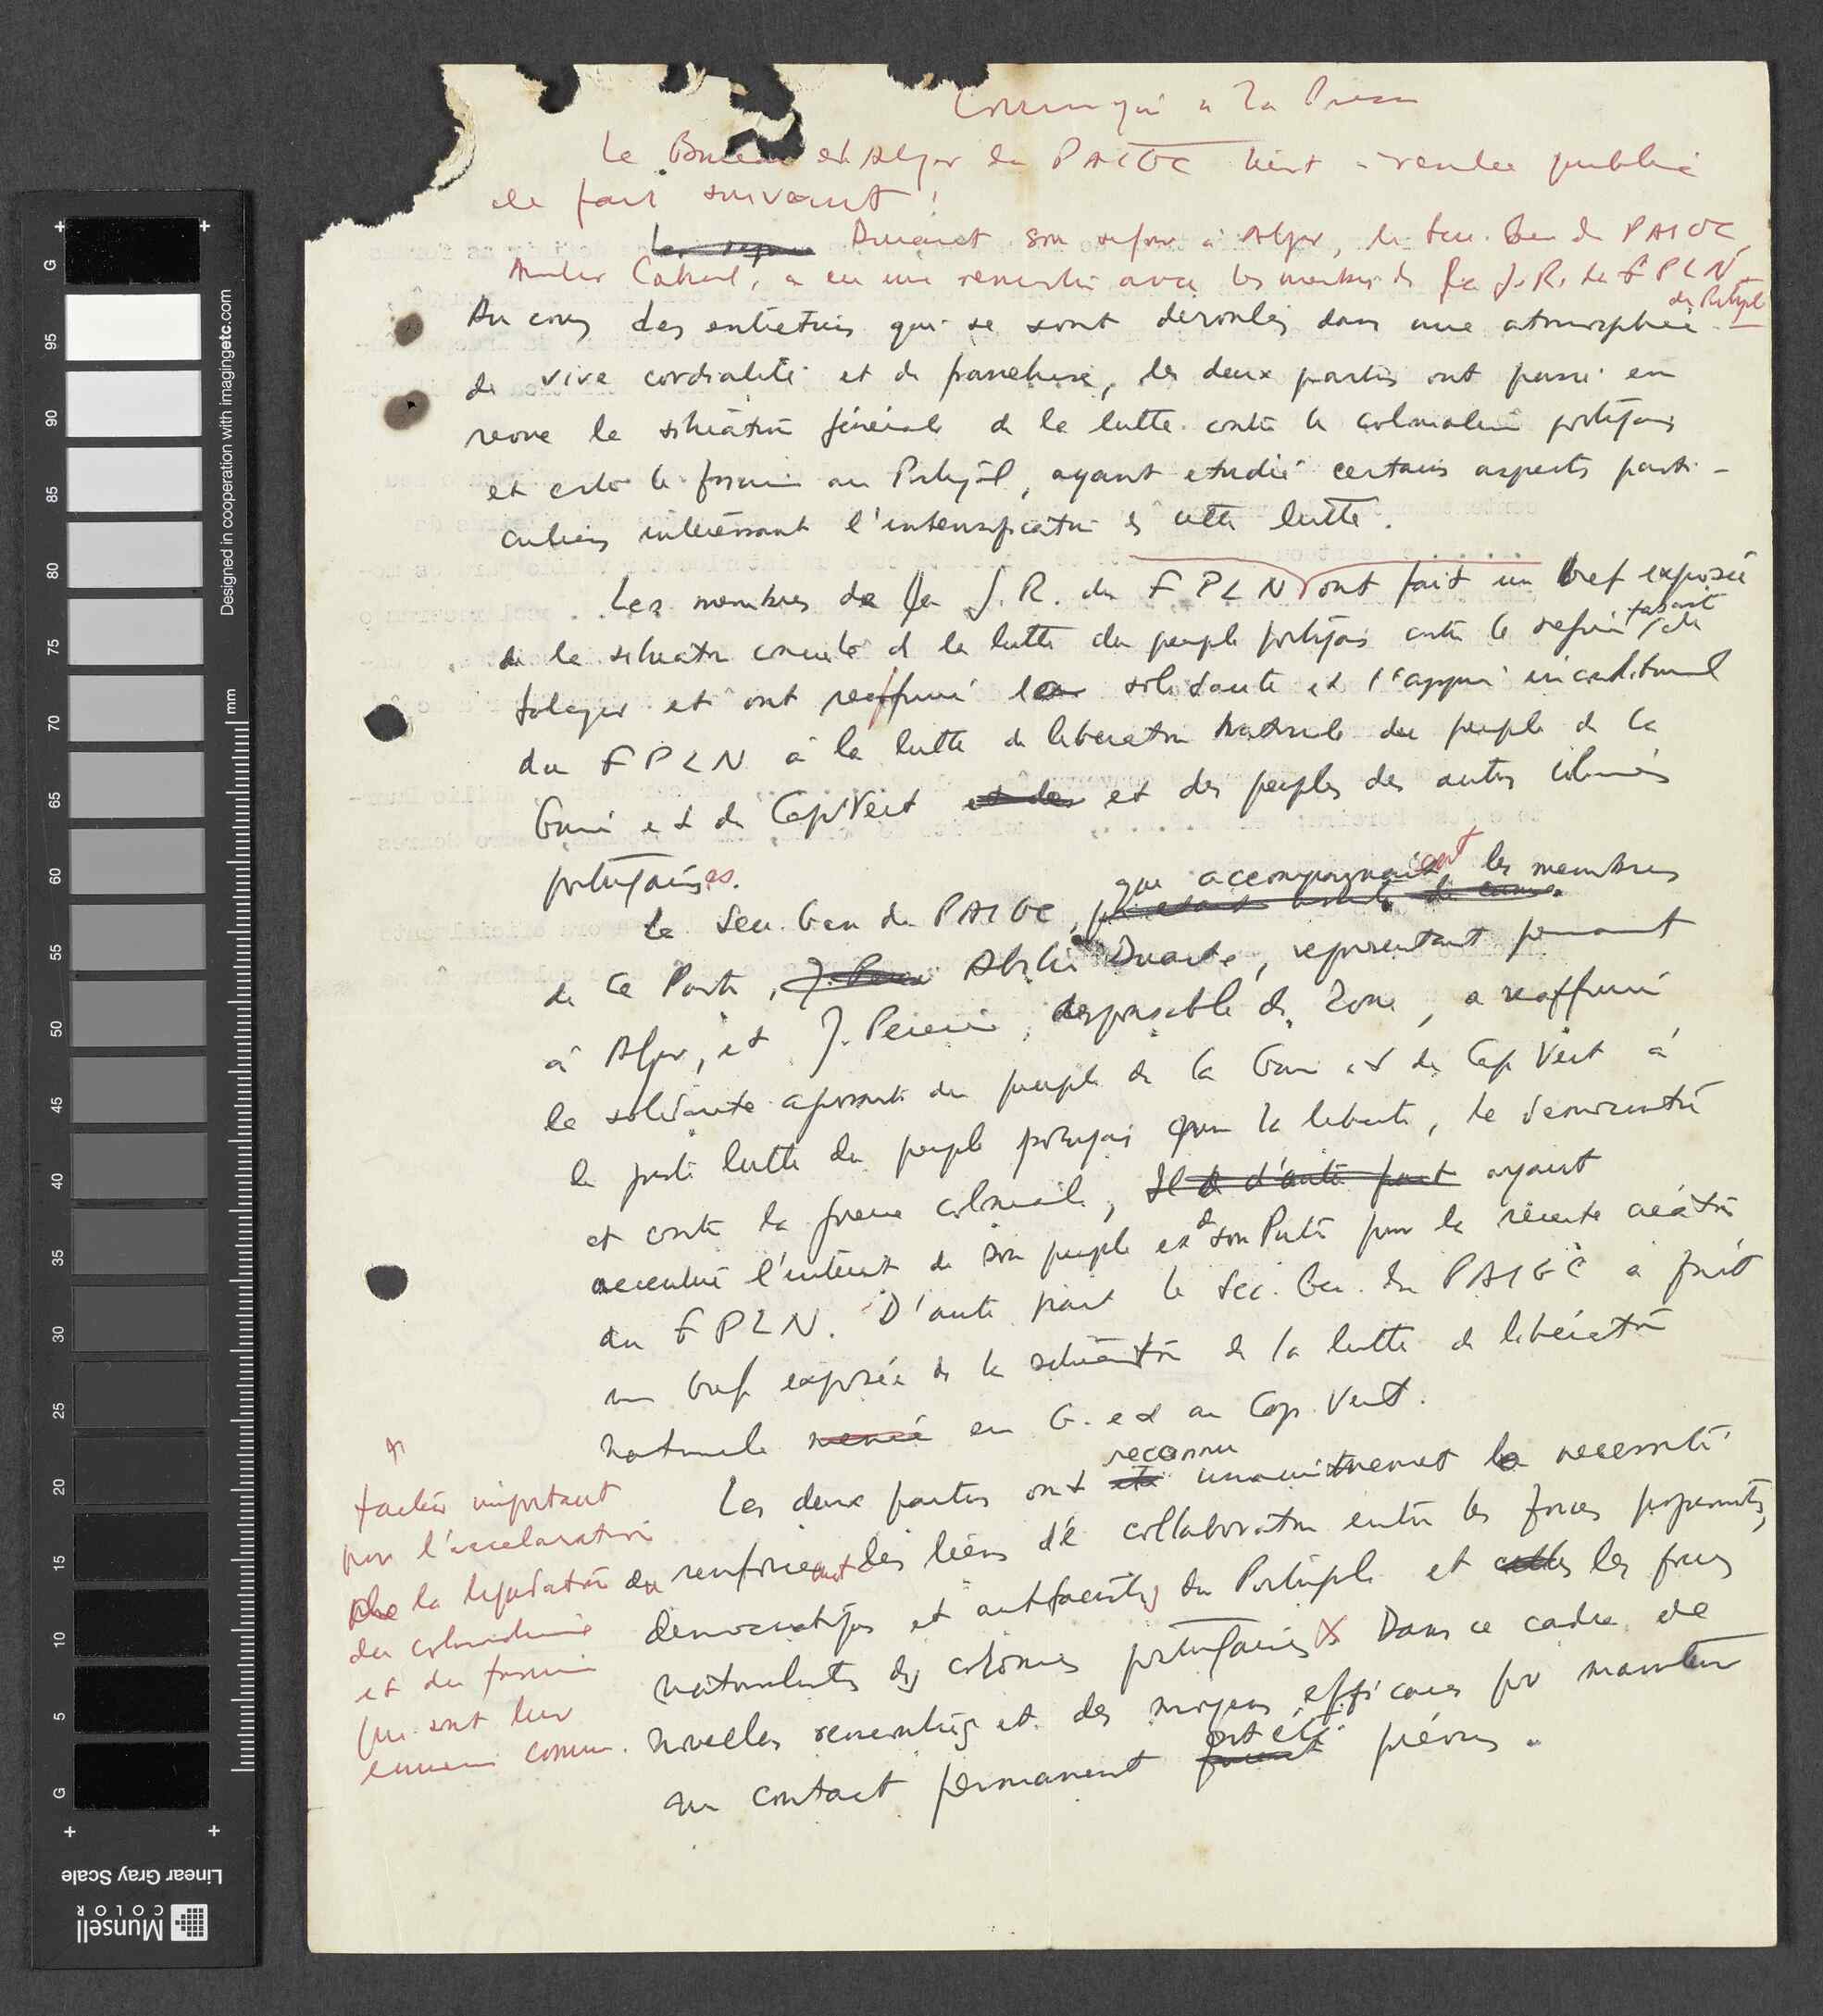 Communiqué à la Presse
Le Bureau d'Alger du PAIGC tient à rendre public
le fait suivant :
Durant son séjour à Alger, le Secr. Gen. du PAIGC,
Amilcar Cabral, a eu une rencontre avec les membres de la J.R. du FPLN
du Portugal
Au cours des entretiens qui se sont déroulés dans une atmosphère
de vive cordialité et de franchise, les deux parties ont passé en
revue la situation générale de la lutte contre le colonialisme portugais
et contre le fascisme au Portugal, ayant etudié certains aspects parti-
culiers intéressant l'intensification de cette lutte.
Les membres de la J.R. du FPLN ont fait un bref exposée
de la situation concrète de la lutte du peuple portugais contre le regime fasciste de
Salazar et ont reaffirmé la solidarité et l'appui inconditionnel
du FPLN à la lutte de liberation nationale du peuple de la
Guiné et du Cap Vert et des peuples des autres colonies
portugaises.
Le Secr. Gen du PAIGC, que accompagnaient les membres
de ce Parti, Abilio Duarte, representant permanent
à Alger, et J. Pereira, responsable de Zone, a reaffirmé
la solidarité agissante du peuple de la Guiné et du Cap Vert à
la juste lutte du peuple portugais pour la liberté, la democratie
et contre la guerre coloniale, Il a d'autre part ayant
accentué l'intérêt de son peuple et de son Parti pour la récente création
du FPLN. D'autre part le Sec. Gen. du PAIGC a fait
un bref exposée de la situation de la lutte de libération
nationale menée en G. et au Cap Vert.
Les deux parties ont reconnu unanimement la necessité
de renforcement des liens de collaboration entre les forces progressistes,
democratiques et antifascistes du Portugal et les forces
nationalistes des colonies portugaises X Dans ce cadre de
nouvelles rencontres et des moyens efficaces pour maintenir
un contact permanent ont été prévus.
facteur important
pour l'acceleration
de la liquidation
du colonialisme
et du fascisme
qui sont leur
ennemi commun.
Designed in cooperation with imagingetc.com
mm
G
95
90
85
80
75
70
65
60
55
50
45
40
35
30
25
20
15
10
5
G
Linear Gray Scale
Munsell
COLOR